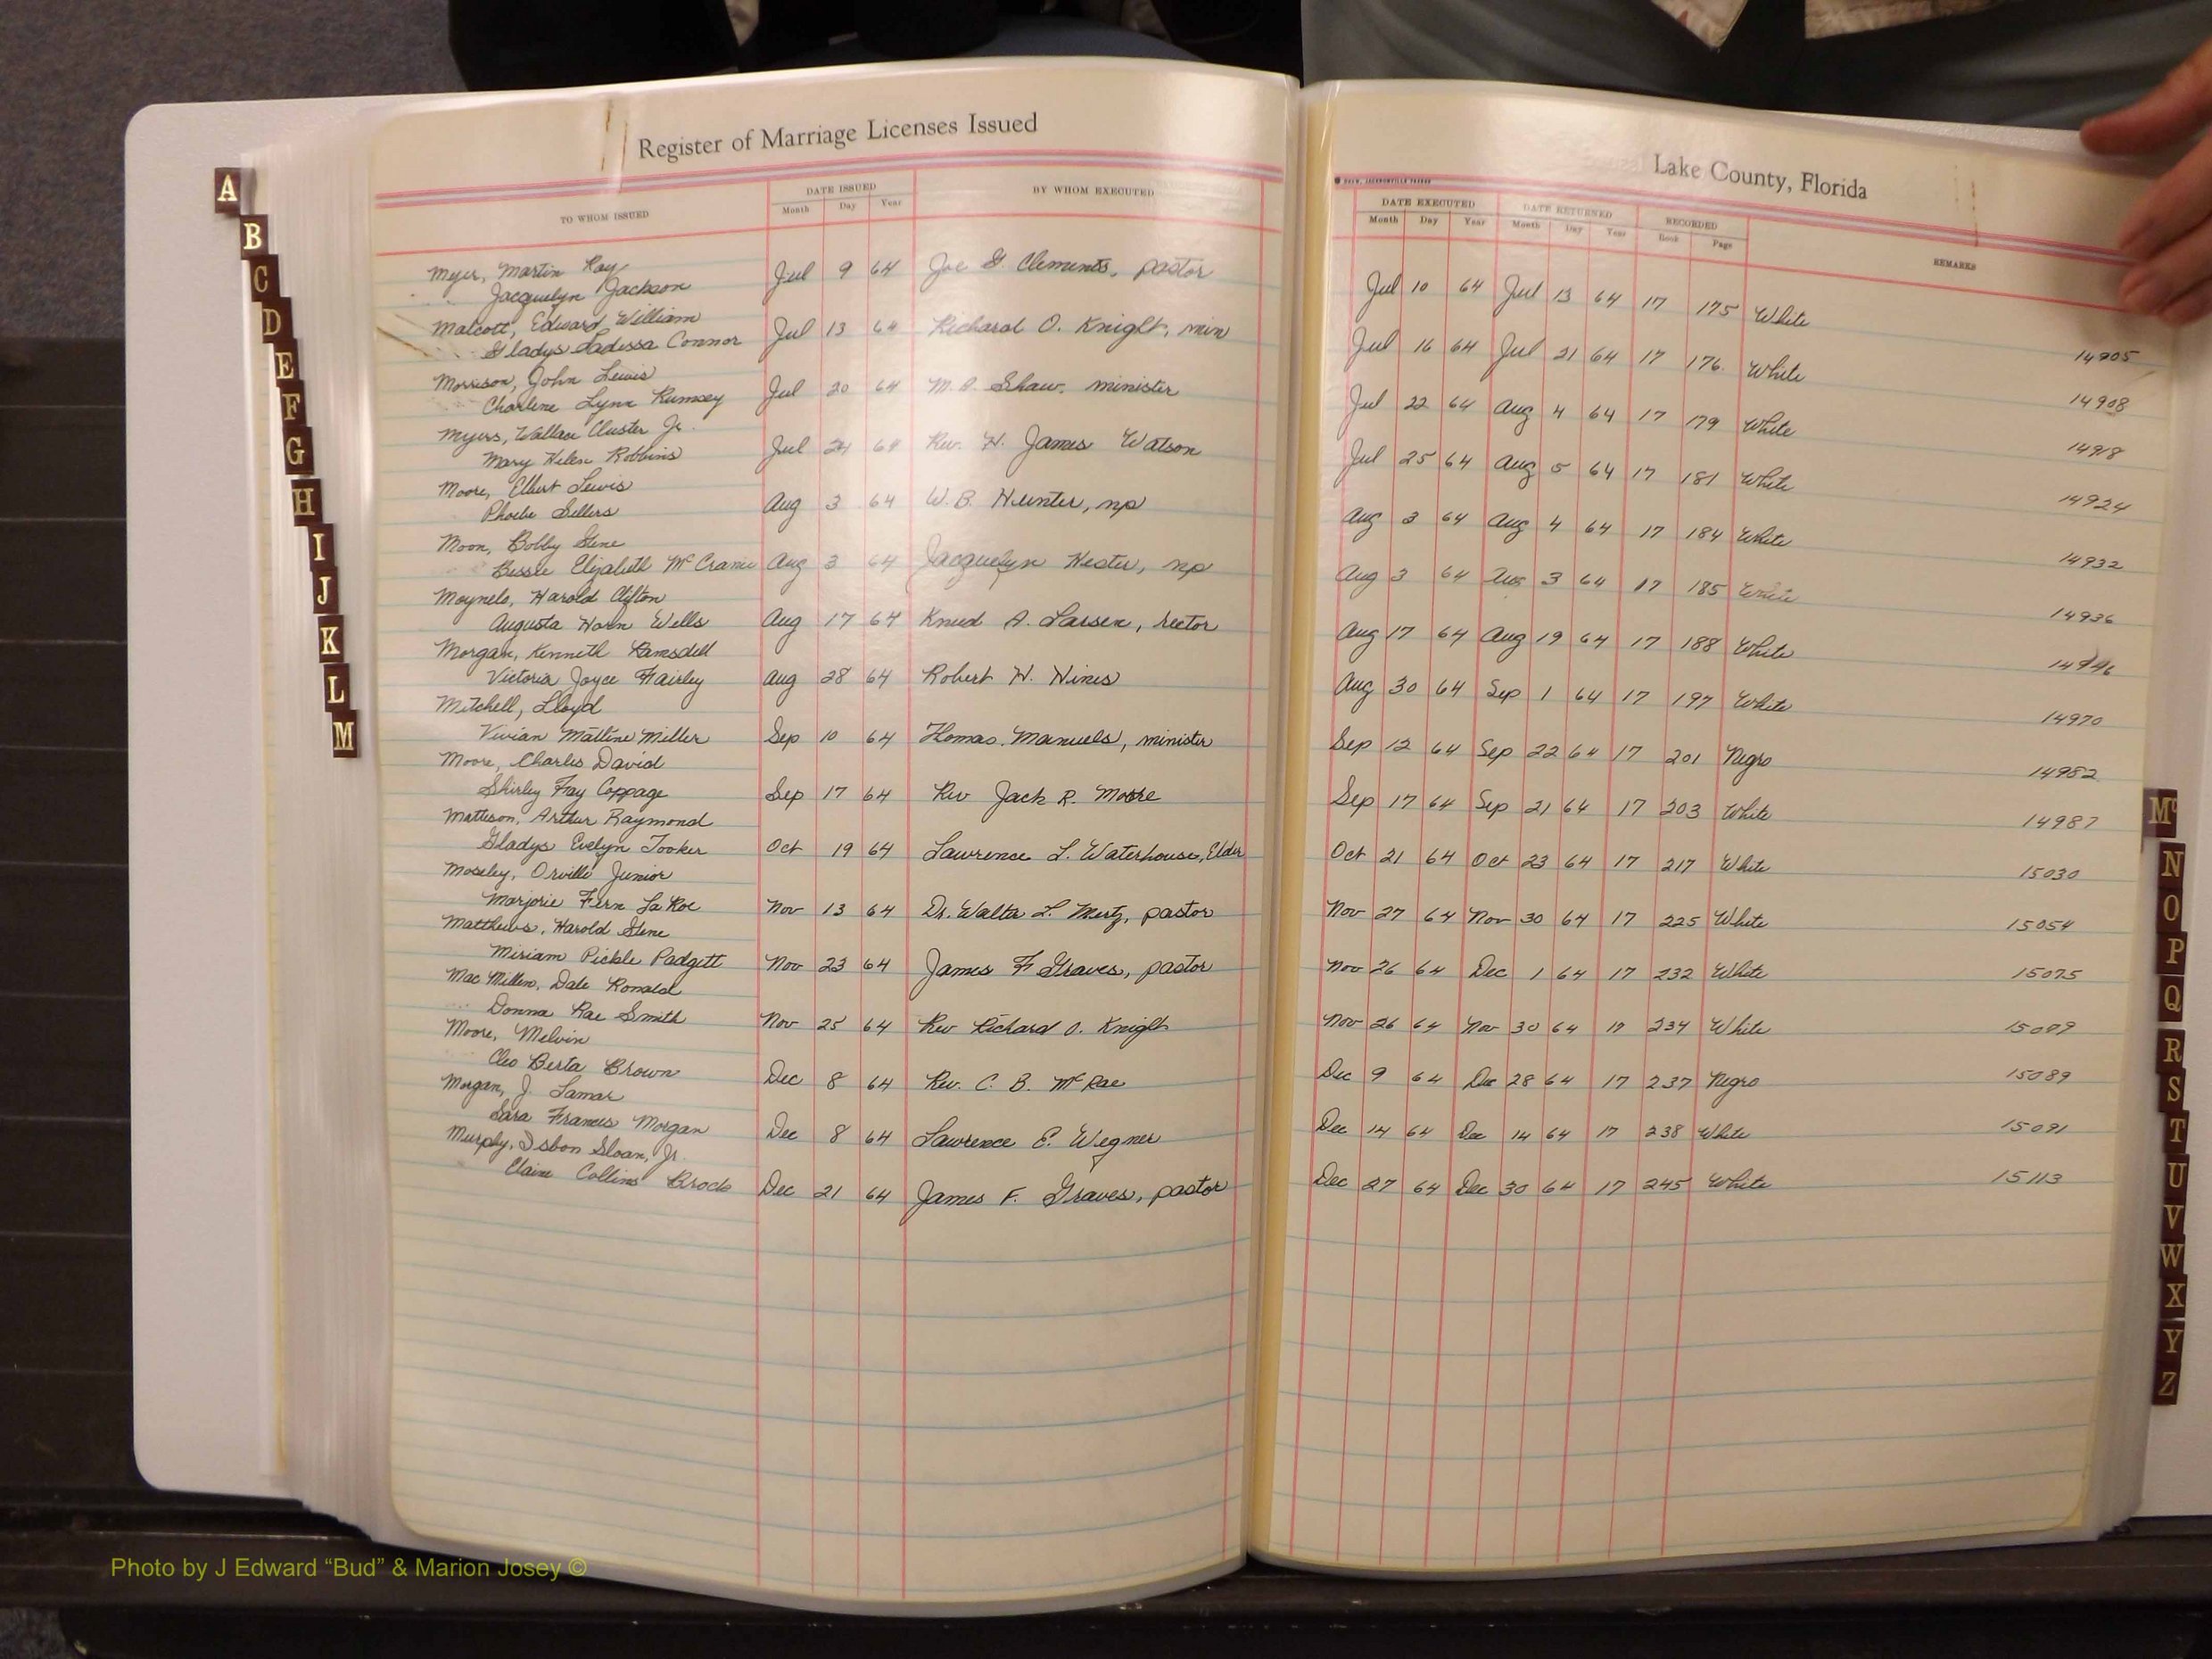 Register of Marriage Licenses Issued
Lake County, Florida
TO WHOM ISSUED
DATE ISSUED
Month Day Year
BY WHOM EXECUTED
DATE EXECUTED
Month Day Year
DATE RETURNED
Month Day Year
RECORDED
Book Page
REMARKS
Myer, Martin Ray
Jacquelyn Jackson Jul 9 64 Joe G. Clements, pastor Jul 10 64 Jul 13 64 17 175 White 14905
Malcott, Edward William
Gladys Ladessa Connor Jul 13 64 Richard O. Knight, min Jul 16 64 Jul 21 64 17 176 White 14908
Morrison, John Lewis
Charlene Lynn Rumsey Jul 20 64 Shaw, minister Jul 22 64 Aug 4 64 17 179 White 14918
Myers, Wallace Cluster Jr.
Mary Helen Robbins Jul 24 64 Rev. H. James Watson Jul 25 64 Aug 5 64 17 181 White 14924
Moore, Elbert Lewis
Phoebe Sellers Aug 3 64 W. B. Hunter, np Aug 3 64 Aug 4 64 17 184 White 14932
Moon, Bobby Gene
Bessie Elizabeth McCranie Aug 3 64 Jacquelyn Hester, np Aug 3 64 Aug 3 64 17 185 White 14936
Moynelo, Harold Clifton
Augusta Horn Wells Aug 17 64 Knud A. Larsen, rector Aug 17 64 Aug 19 64 17 188 White 14946
Morgan, Kenneth Ramsdell
Victoria Joyce Fairley Aug 28 64 Robert H. Hines Aug 30 64 Sep 1 64 17 197 White 14970
Mitchell, Lloyd
Vivian Matline Miller Sep 10 64 Thomas Manuels, minister Sep 12 64 Sep 22 64 17 201 Negro 14982
Moore, Charles David
Shirley Fay Coppage Sep 17 64 Rev Jack R. Moore Sep 17 64 Sep 21 64 17 203 White 14987
Matteson, Arthur Raymond
Gladys Evelyn Tooker Oct 19 64 Lawrence L. Waterhouse, Elder Oct 21 64 Oct 23 64 17 217 White 15030
Moseley, Orville Junior
Marjorie Fern LaRoe Nov 13 64 Dr. Walter L. Mertz, pastor Nov 27 64 Nov 30 64 17 225 White 15054
Matthews, Harold Gene
Miriam Pickle Padgett Nov 23 64 James F Graves, pastor Nov 26 64 Dec 1 64 17 232 White 15075
MacMillen, Dale Ronald
Donna Rae Smith Nov 25 64 Rev Richard O. Knight Nov 26 64 Nov 30 64 17 234 White
Moore, Melvin
Cleo Berta Brown Dec 8 64 Rev. C. B. McRae Dec 9 64 Dec 28 64 17 237 Negro 15089
Morgan, J. Lamar
Sara Frances Morgan Dec 8 64 Lawrence E. Wegner Dec 14 64 Dec 14 64 17 238 White 15091
Murphy, Isbon Sloan, Jr.
Elaine Collins Brock Dec 21 64 James F. Graves, pastor Dec 27 64 Dec 30 64 17 245 White 15113
A
B
C
D
E
F
G
H
I
J
K
L
M
Mc
N
O
P
Q
R
S
T
U
V
W
X
Y
Z
Photo by J Edward “Bud” & Marion Josey ©